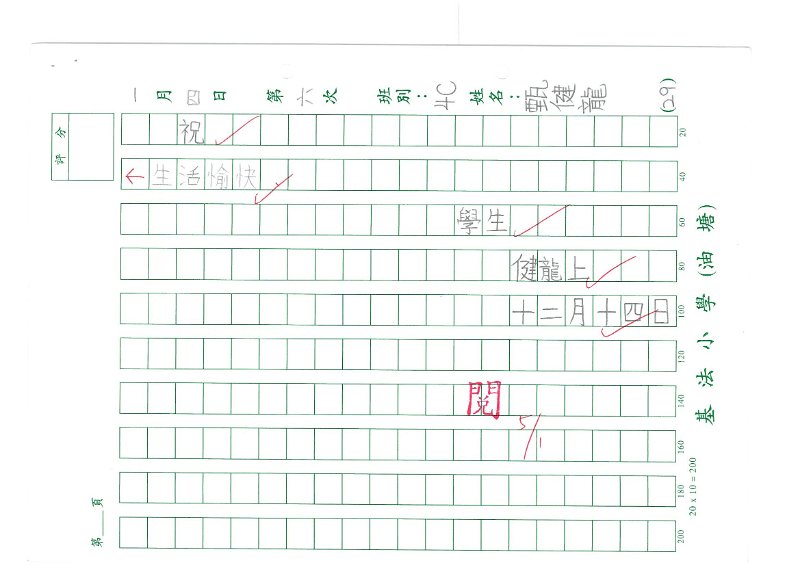 一月四日 第六次 班別：4C 姓名：甄健龍 (29)
評分
祝 20
↑生活愉快 40
學生 60
健龍上 80
十二月十四日 100
120
閱 140
5/1 160
180
200
基法小學（油塘）
20 x 10 = 200
第___頁